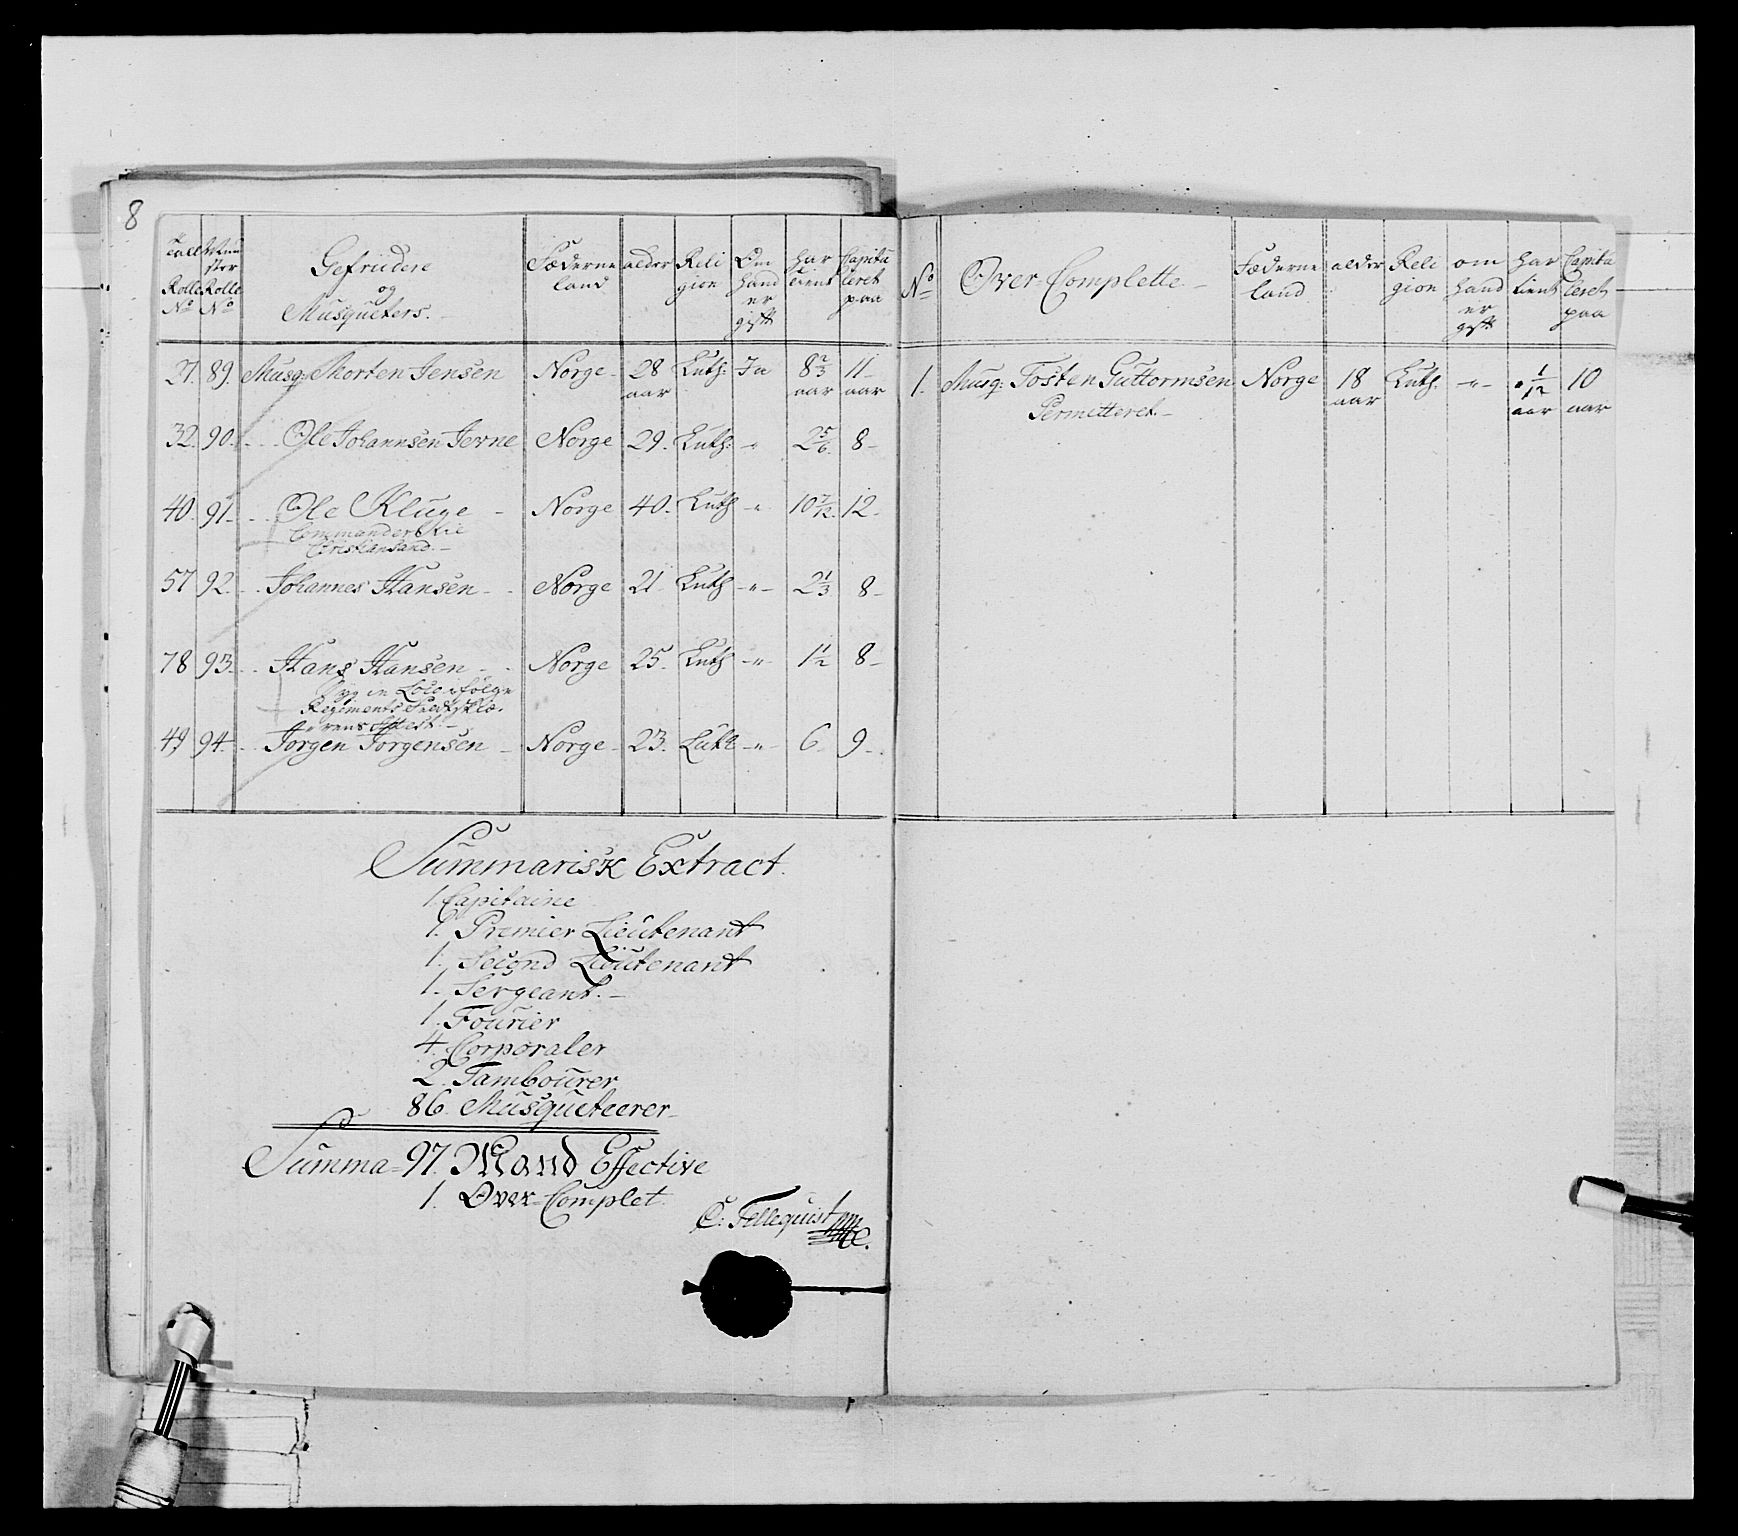 8
Tall Rolle No | Mun ster Rolle No | Gefriedere og Musqueters. | Fæderne land | alder | Reli gion | Om hand er gift | har tient | Capitu leret paa
27. | 89. | Musq: Morten Jensen | Norge | 28 aar | Luth: | Ja | 8 2/3 aar | 11 aar
32. | 90. | Ole Johannsen Jerne | Norge | 29. | Luth: | " | 2 5/6 | 8
40. | 91. | Ole Kluge | Norge | 40. | Luth | " | 10 7/12 | 12
Commanderet
Christiansand.
57 | 92. | Johannes Hansen | Norge | 21 | Luth | " | 2 1/3 | 8
78 | 93. | Hans Hansen | Norge | 25. | Luth | " | 1 1/2 | 8
Syg in Loco ifølge
Regiments
Attest.
49 | 94. | Jørgen Jørgensen | Norge | 23. | Luth | " | 6 | 9
Summarisk Extract.
1. Capitaine
1. Premier Lieutenant
1. Second Lieutenant
1. Sergeant.
1. Fourier
4. Corporaler
2. Tambourer
86. Musqueteerer
Summa = 97. Mand Effective
1. Over-Complet.
C: Tellequist
No | Over-Complette | Fæderne land | alder | Reli gion | om hand er gift | har tient | Capitu leret paa
1. | Musq: Tosten Guttormsen | Norge | 18 aar | Luth: | " | 1/12 aar | 10 aar
Permitteret.